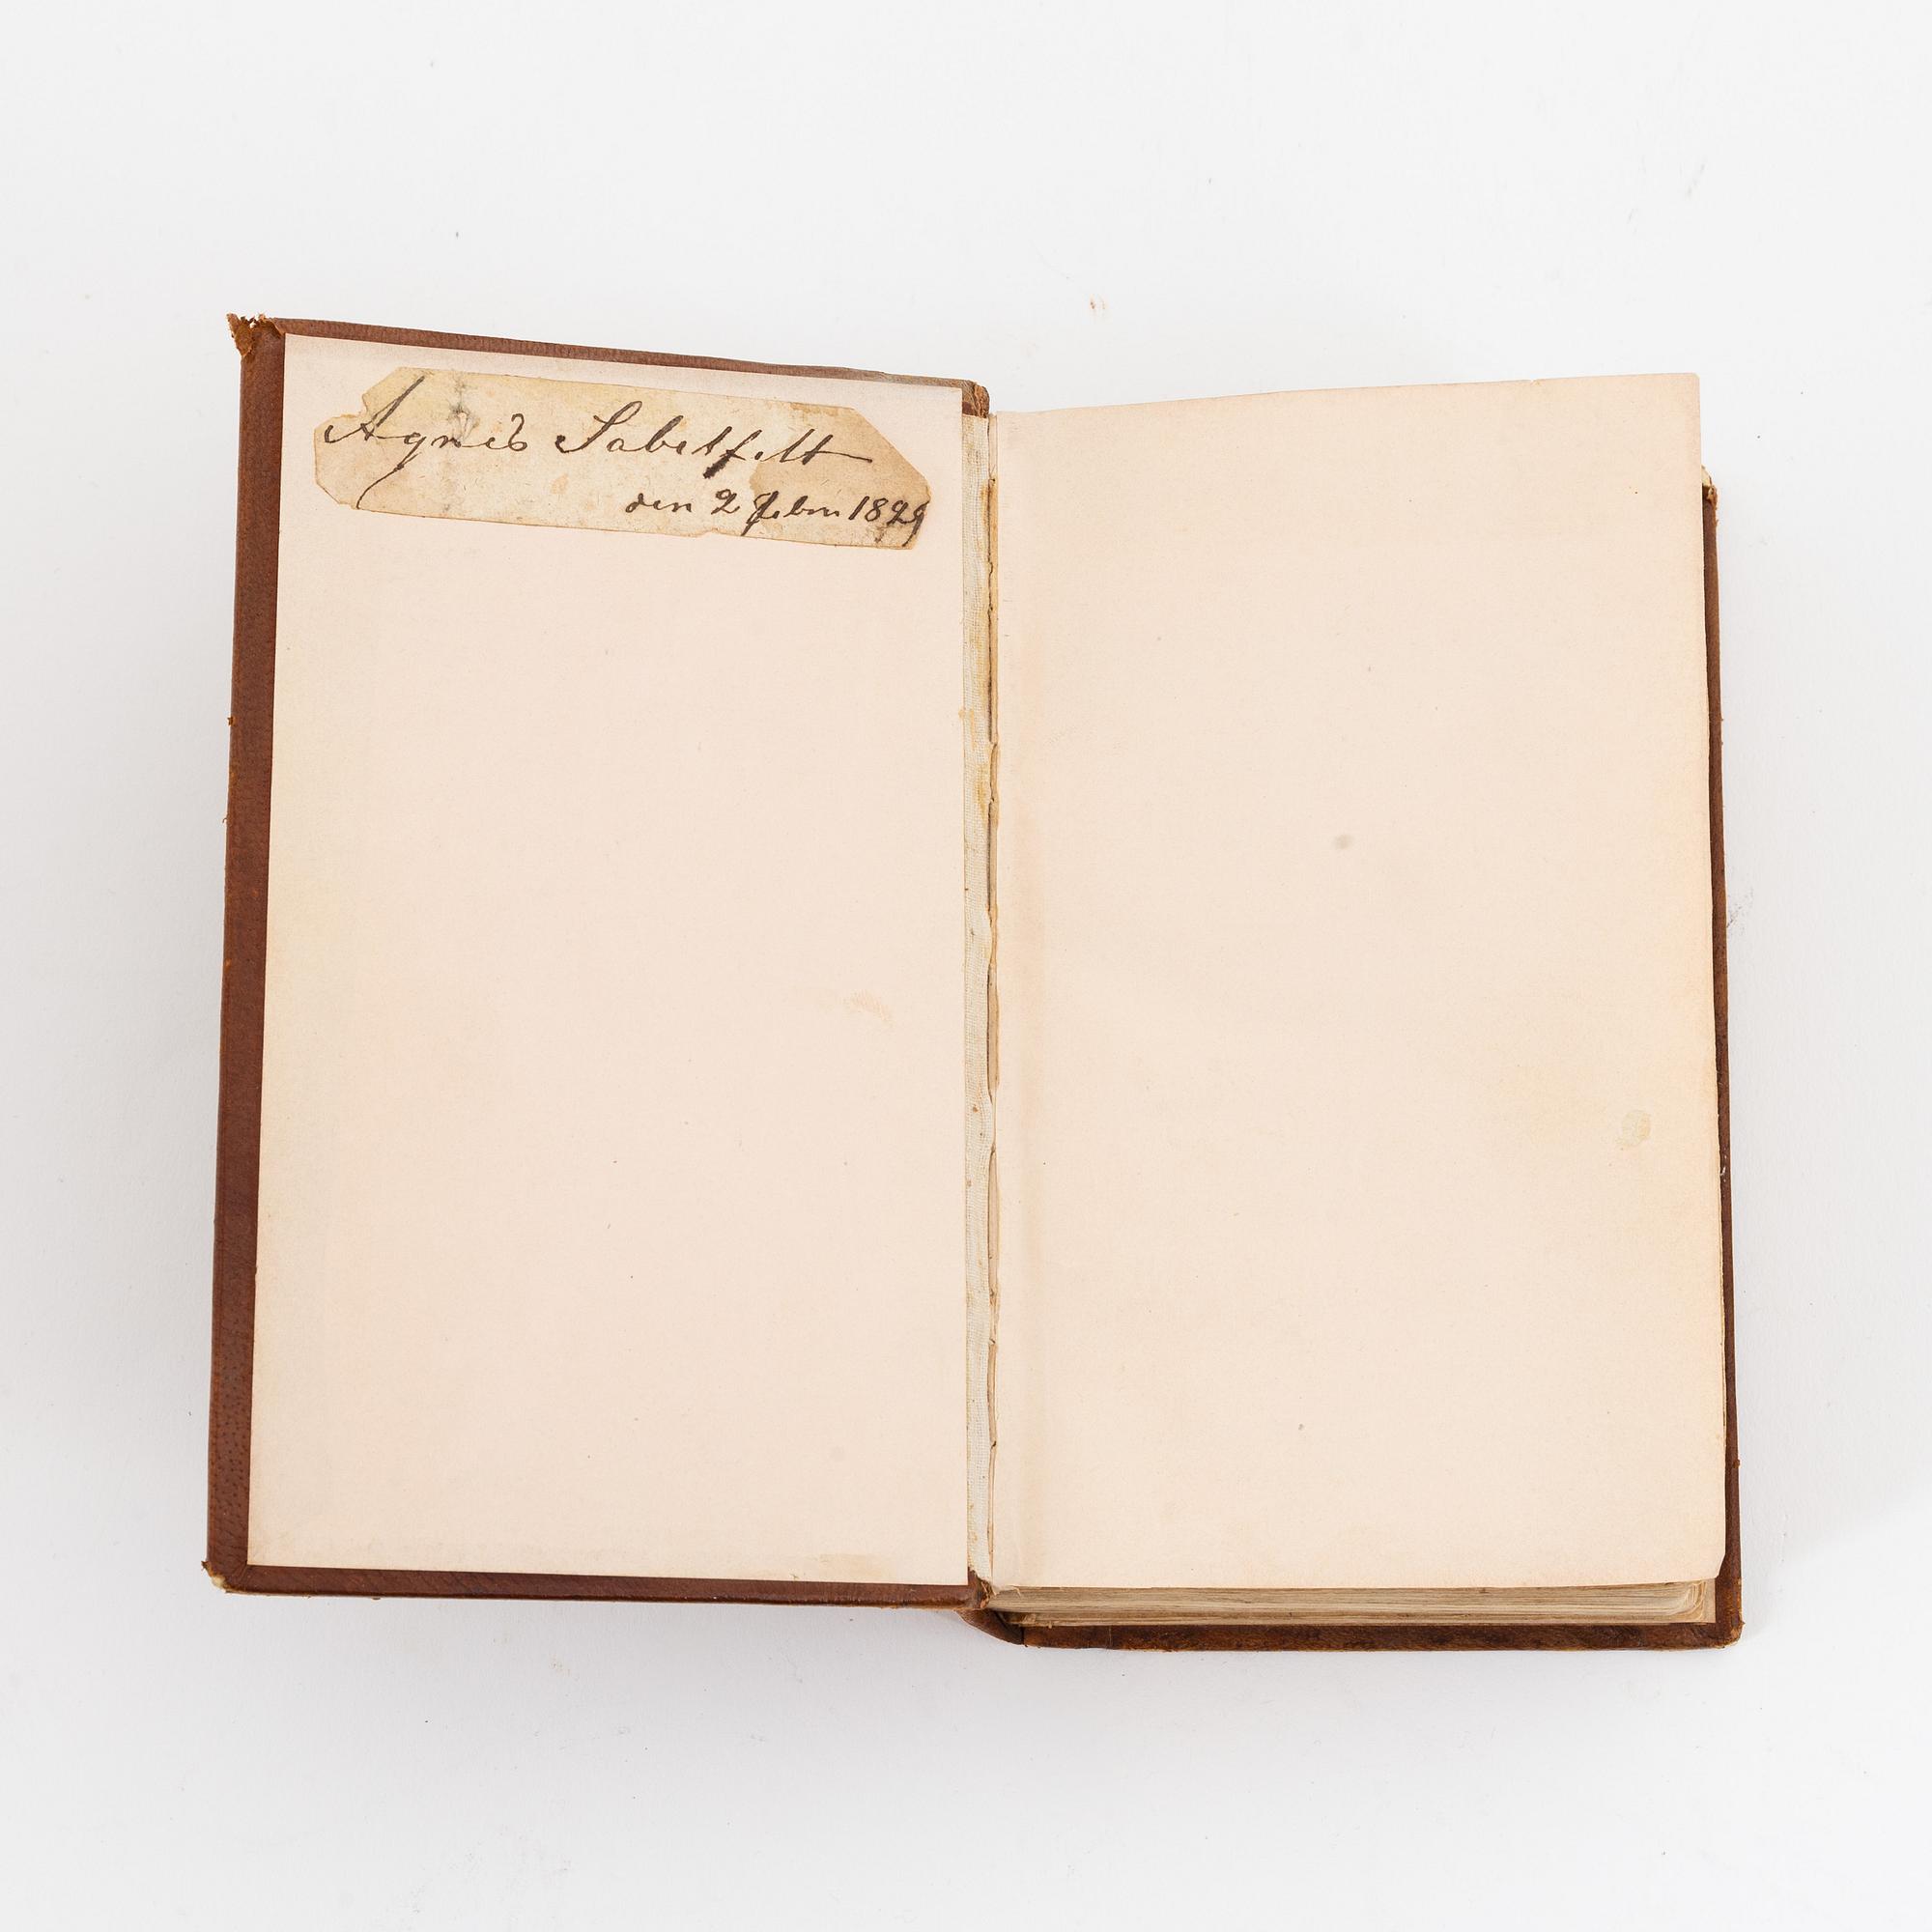 Agnes Sabelfelt
den 2 Febru 1899